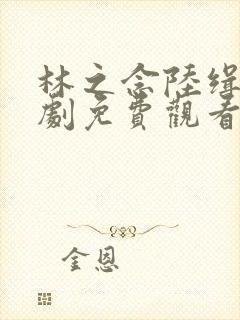 林之念陸緝
劇免費觀看
金恩